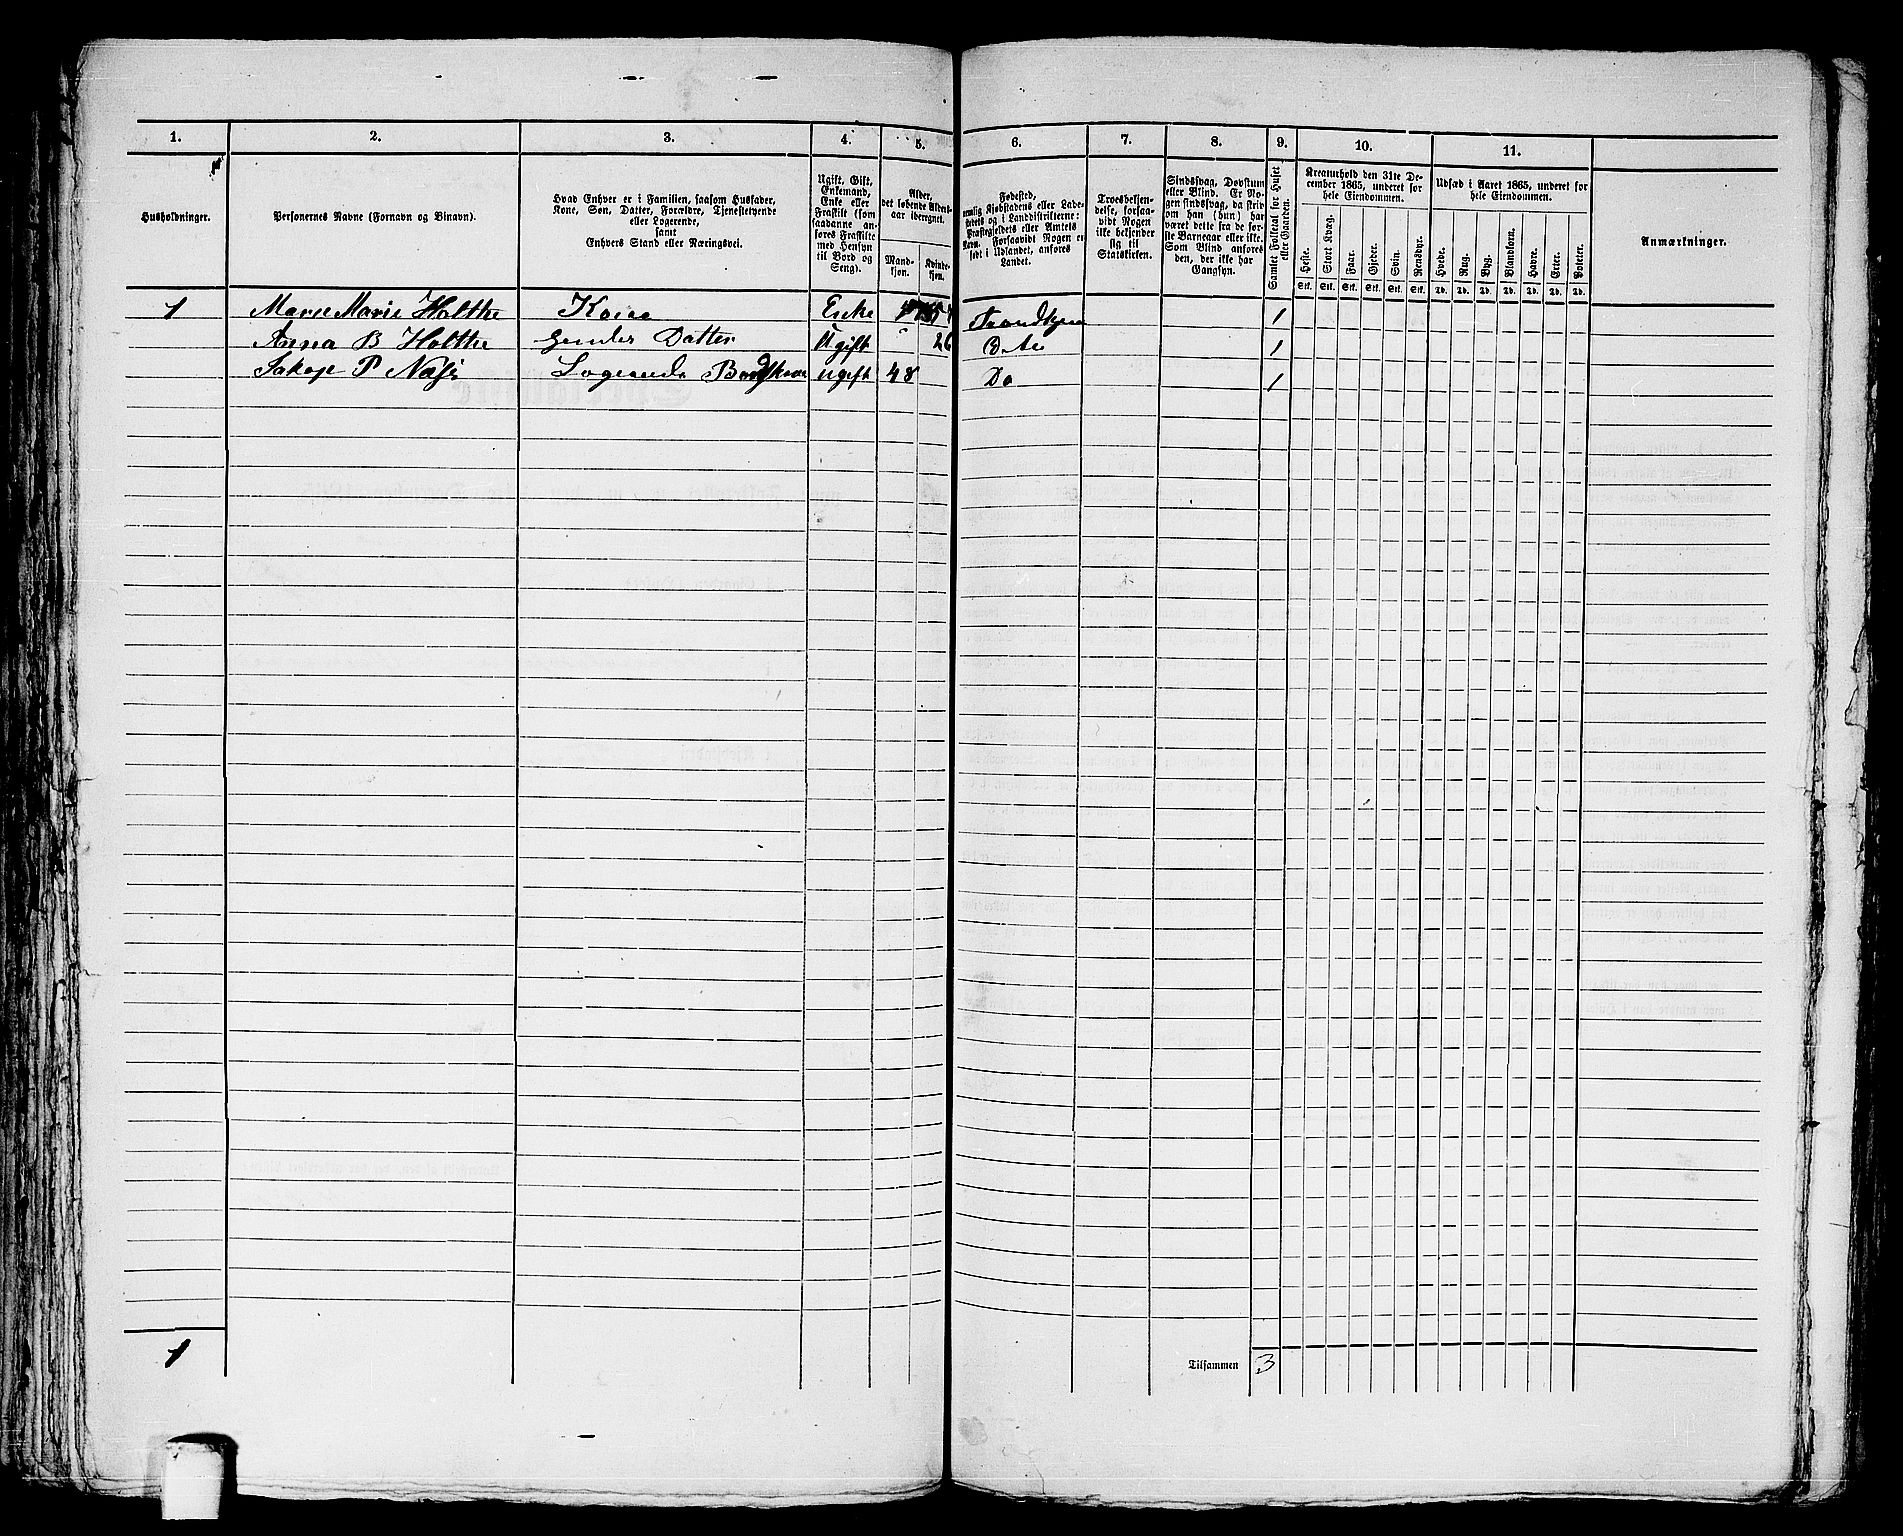 1.
2.
3.
4.
5.
6.
7.
8.
9.
10.
11.
Husholdninger.
Personernes Navne (Fornavn og Binavn).
Hvad Enhver er i Familien, saasom Husfader,
Kone, Søn, Datter, Forældre, Tjenestetyende
eller Logerende,
samt
Enhvers Stand eller Næringsvei.
Ugift, Gift,
Enkemand,
Enke eller
Fraskilt (som
saadanne an-
føres Fraskilte
med Hensyn
til Bord og
Seng).
Alder,
det løbende Alders-
aar iberegnet.
Mand-
kjøn.
Kvinde-
kjøn.
Fødested,
nemlig Kjøbstadens eller Lade-
stedets og i Landdistrikterne:
Præstegjeldets eller Amtets
Navn. Forsaavidt Nogen er
født i Udlandet, anføres
Landet.
Troesbekjen-
delse, forsaa-
vidt Nogen
ikke bekjender
sig til
Statskirken.
Sindssvag, Døvstum
eller Blind. Er No-
gen sindssvag, da skriv
om han (hun) har
været dette fra de før-
ste Barneaar eller ikke.
Som Blind anføres
den, der ikke har
Gangsyn.
Samlet Folketal for Huset
eller Gaarden.
Kreaturhold den 31te De-
cember 1865, underet for
hele Eiendommen.
Heste. Stort Kvæg. Faar. Gjeder. Svin. Rensdyr.
Stk. Stk. Stk. Stk. Stk. Stk.
Udsæd i Aaret 1865, underet for
hele Eiendommen.
Hvede. Rug. Byg. Blandkorn. Havre. Erter. Poteter.
Td. Td. Td. Td. Td. Td. Td.
Anmærkninger.
1 Marie Holthe Kone Enke 1
Anna B Holthe Datter Ugift " 26 1
P Logerende ugift 48 Do 1
1
Tilsammen 3